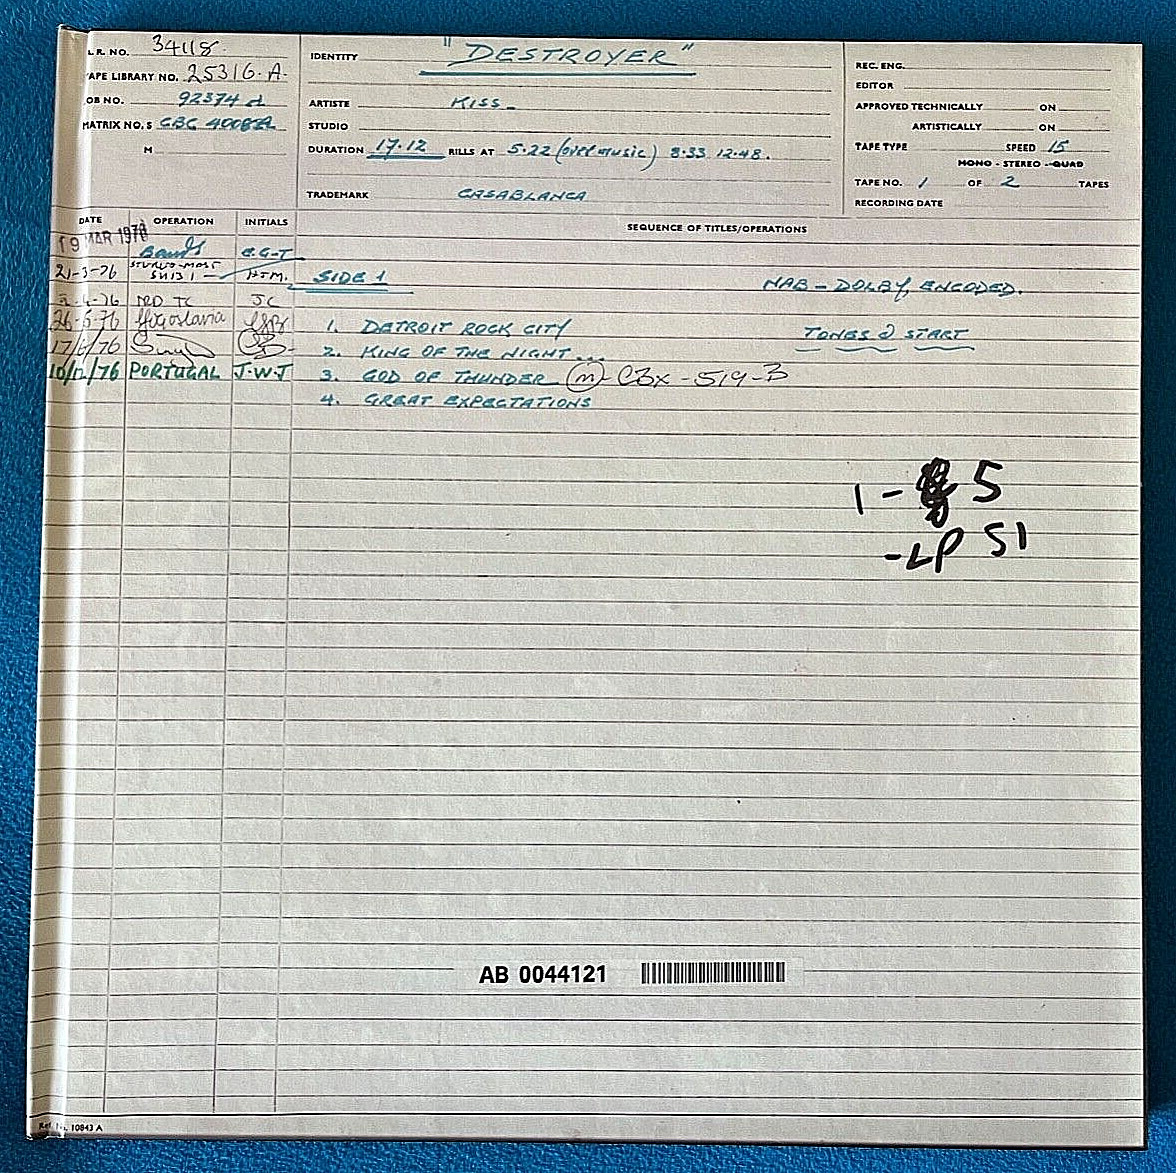 L.R. NO. 34118
TAPE LIBRARY NO. 25316.A.
JOB NO. 92374
MATRIX NO.S CBC 4008A
M
IDENTITY "DESTROYER"
ARTISTE KISS
STUDIO
DURATION 17.12 RILLS AT 5.22 (over music) 8.33 12.48.
TRADEMARK CASABLANCA
REC. ENG.
EDITOR
APPROVED TECHNICALLY ON
ARTISTICALLY ON
TAPE TYPE SPEED 15
MONO - STEREO - QUAD
TAPE NO. 1 OF 2 TAPES
RECORDING DATE
DATE OPERATION INITIALS SEQUENCE OF TITLES/OPERATIONS
19 MAR 1976 Bands E.G-T
21-3-76 H.T.M.
SIDE 1 NAB - DOLBY, ENCODED.
-76 TC JC
26-5-76 Yugoslavia
1. DETROIT ROCK CITY TONES @ START
17/6/76
2. KING OF THE NIGHT...
10/12/76 PORTUGAL J.W.J
3. GOD OF THUNDER (m) - CBX - 519 - B
4. GREAT EXPECTATIONS
1 - 5
- LP S1
AB 0044121
Ref. No. 10843 A